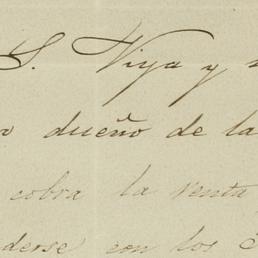 S. Viya y
dueño de la
cobra la venta
derse con los